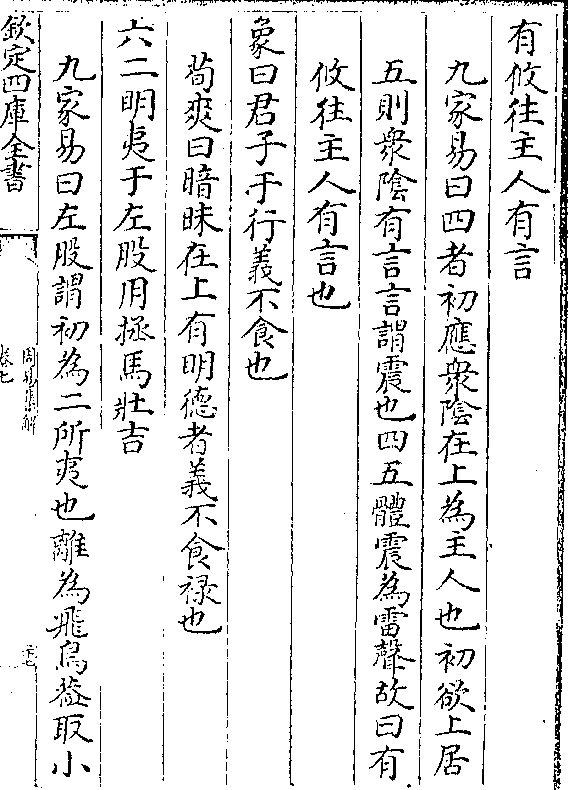 有攸往主人有言
九家易曰四者初應衆陰在上為主人也初欲上居
五則衆陰有言言謂震也四五體震為雷聲故曰有
攸往主人有言也
象曰君子于行義不食也
荀爽曰暗昧在上有明德者義不食禄也
六二明夷于左股用拯馬壯吉
九家易曰左股謂初為二所夷也離為飛鳥葢取小
欽定四庫全書
周易集解
卷七